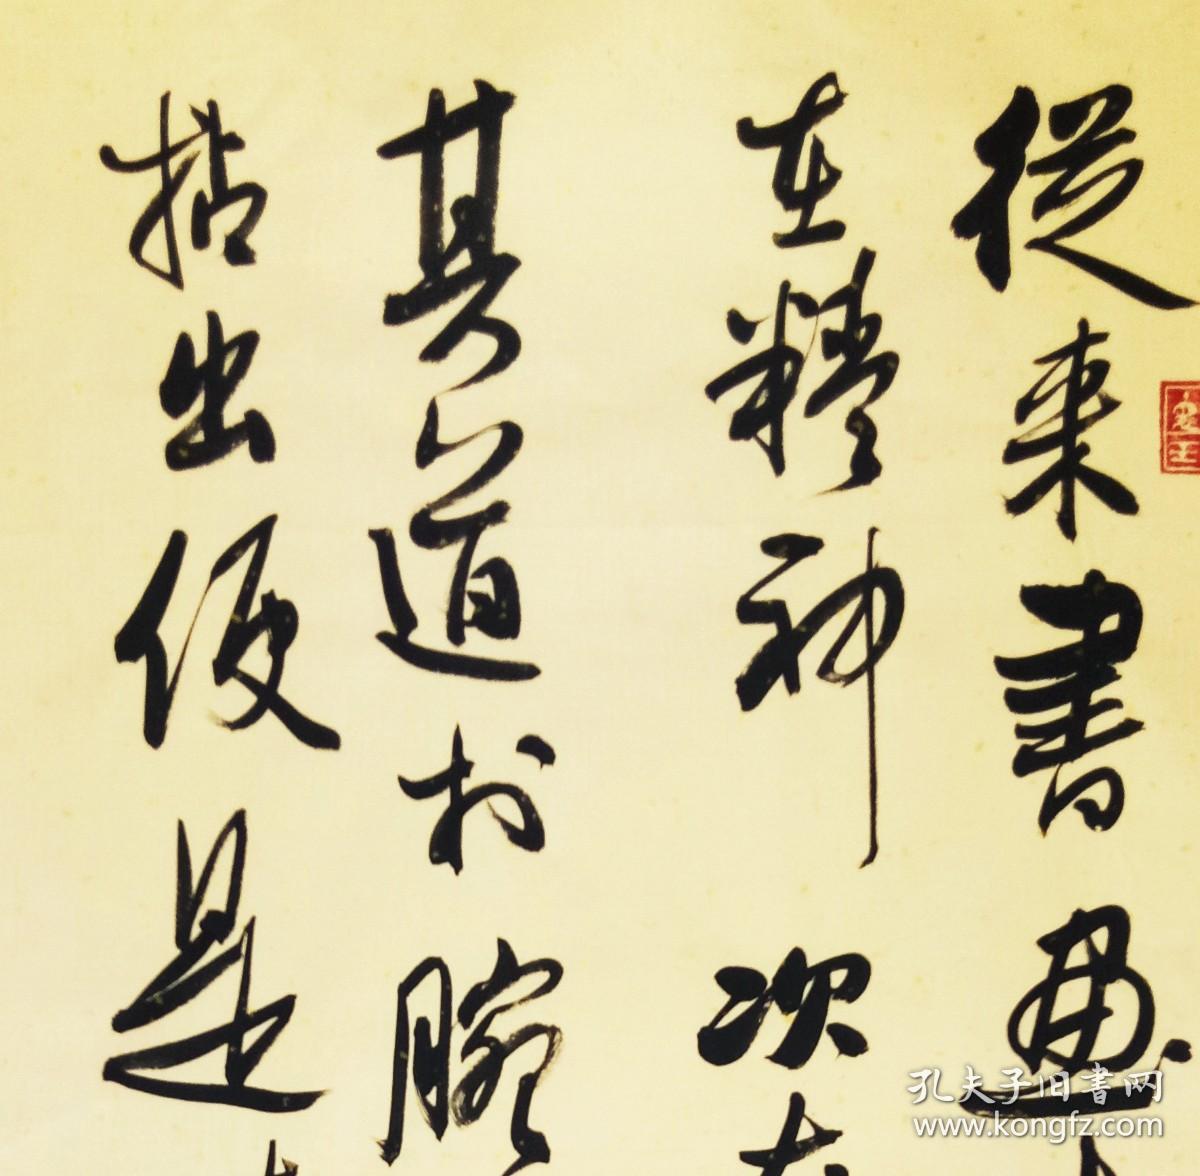 從来書画
在精神次
其道於腕
拈出便是
孔夫子旧书网
www.kongfz.com